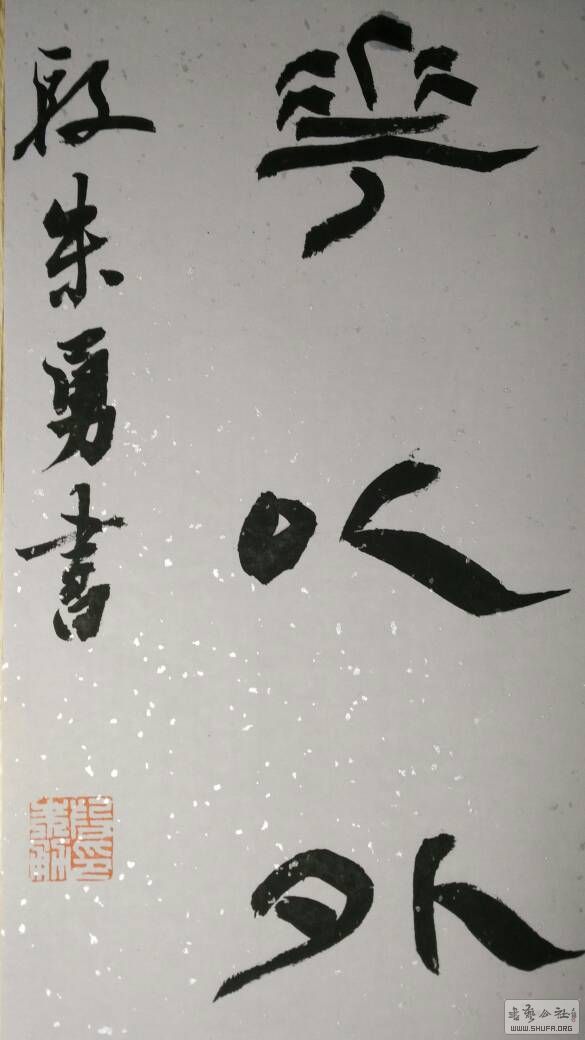 以外
段朱勇書
書藝公社
WWW.SHUFA.ORG